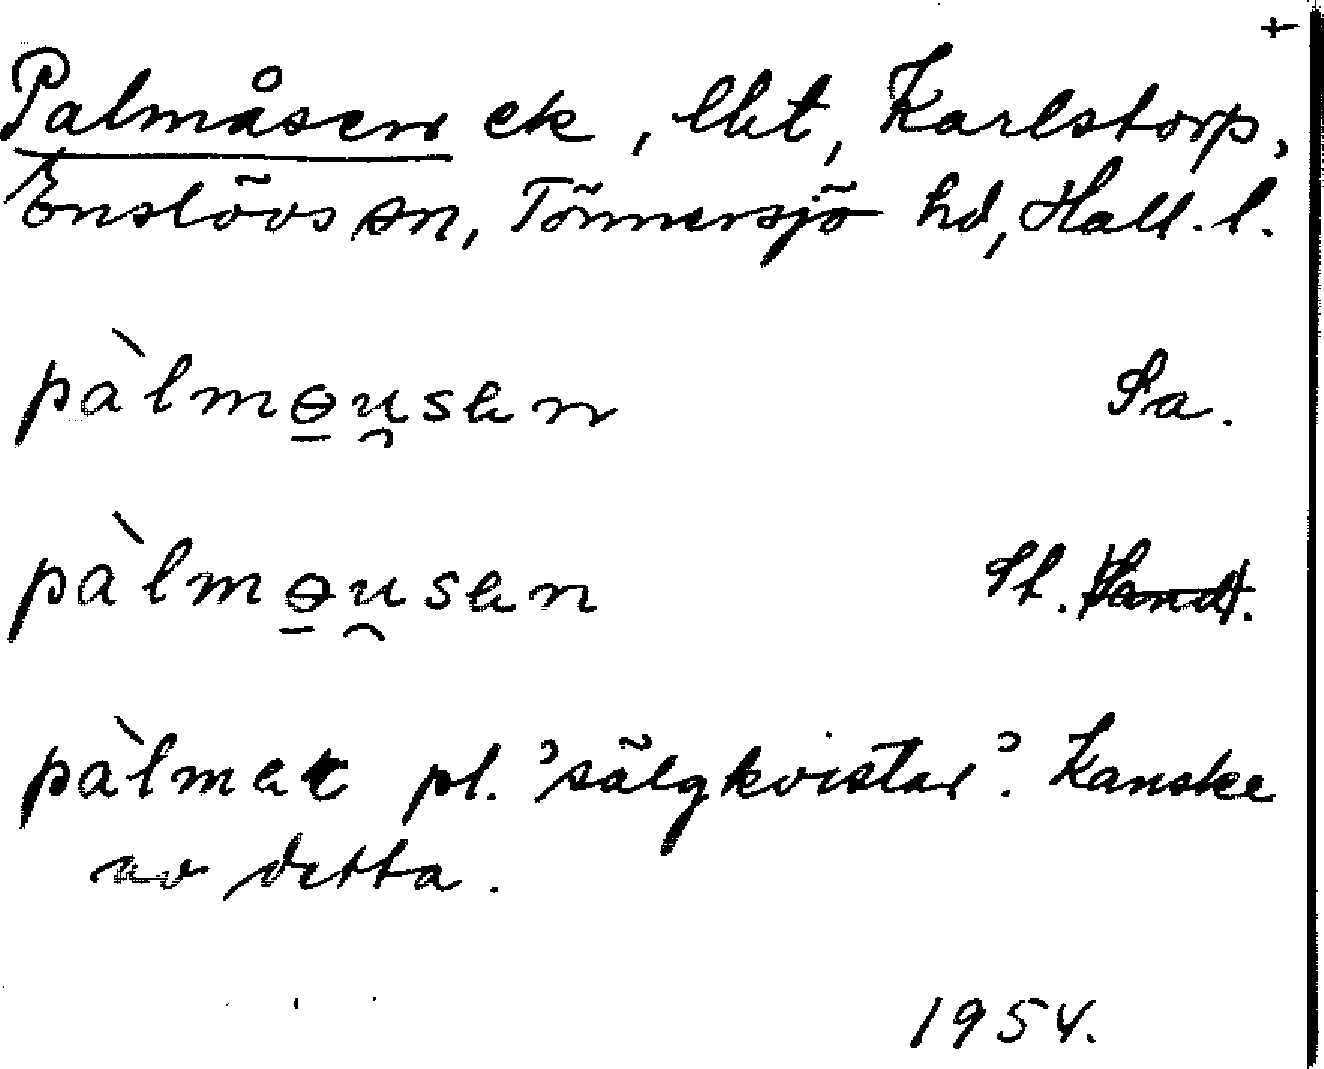 +
Palmåsen ek, lht, Karlstorp,
Enslövs sn, Tönnersjö hd, Hall. l.
pàlmɵu̯sen Sa.
pàlmɵu̯sen St.
pàlmer pl. 'sälgkvistar'. Kanske
av detta.
1954.